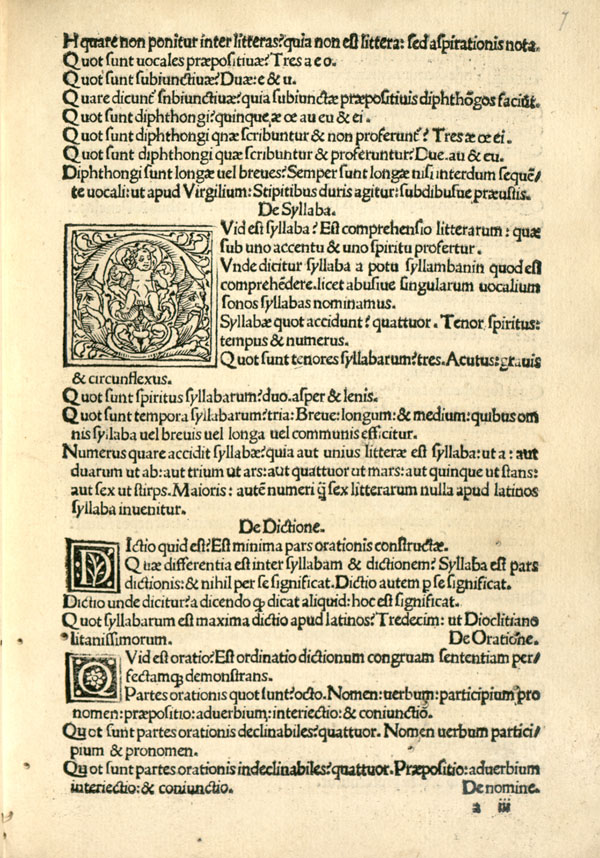 7
H quare non ponitur inter litteras? quia non est littera: sed aspirationis nota.
Quot sunt uocales præpositiuæ? Tres a e o.
Quot sunt subiunctiuæ? Duæ: e & u.
Quare dicunt̃ snbiunctiuæ? quia subiunctæ præpositiuis diphthõgos faciũt.
Quot sunt diphthongi? quinque, æ œ au eu & ei.
Quot sunt diphthongi qnæ scribuntur & non proferunt̃? Tres æ œ ei.
Quot sunt diphthongi quæ scribuntur & proferuntur? Due. au & eu.
Diphthongi sunt longæ uel breues? Semper sunt longæ nisi interdum sequẽ/
te uocali: ut apud Virgilium: Stipitibus duris agitur: subdibusue præustis.
De Syllaba.
QVid est syllaba? Est comprehensio litterarum: quæ
sub uno accentu & uno spiritu profertur.
Vnde dicitur syllaba a potu syllambanin quod est
comprehẽdere. licet abusiue singularum uocalium
sonos syllabas nominamus.
Syllabæ quot accidunt? quattuor. Tenor, spiritus:
tempus & numerus.
Quot sunt tenores syllabarum? tres. Acutus: grauis
& circunflexus.
Quot sunt spiritus syllabarum? duo. asper & lenis.
Quot sunt tempora syllabarum? tria: Breue: longum: & medium: quibus om
nis syllaba uel breuis uel longa uel communis efficitur.
Numerus quare accidit syllabæ? quia aut unius litteræ est syllaba: ut a: aut
duarum ut ab: aut trium ut ars: aut quattuor ut mars: aut quinque ut stans:
aut sex ut stirps. Maioris: autẽ numeri q̃ sex litterarum nulla apud latinos
syllaba inuenitur.
De Dictione.
DIctio quid est? Est minima pars orationis constructæ.
Quæ differentia est inter syllabam & dictionem? Syllaba est pars
dictionis: & nihil per se significat. Dictio autem p̱ se significat.
Dictio unde dicitur? a dicendo ꝙ dicat aliquid: hoc est significat.
Quot syllabarum est maxima dictio apud latinos? Tredecim: ut Dioclitiano
litanissimorum. De Oratione.
QVid est oratio? Est ordinatio dictionum congruam sententiam per/
fectamq; demonstrans.
Partes orationis quot sunt? octo. Nomen: uerbum: participium pro
nomen: præpositio: aduerbium: interiectio: & coniunctiõ.
Quot sunt partes orationis declinabiles? quattuor. Nomen uerbum partici/
pium & pronomen.
Quot sunt partes orationis indeclinabiles? quattuor. Præpositio: aduerbium
interiectio: & coniunctio. De nomine.
a iii